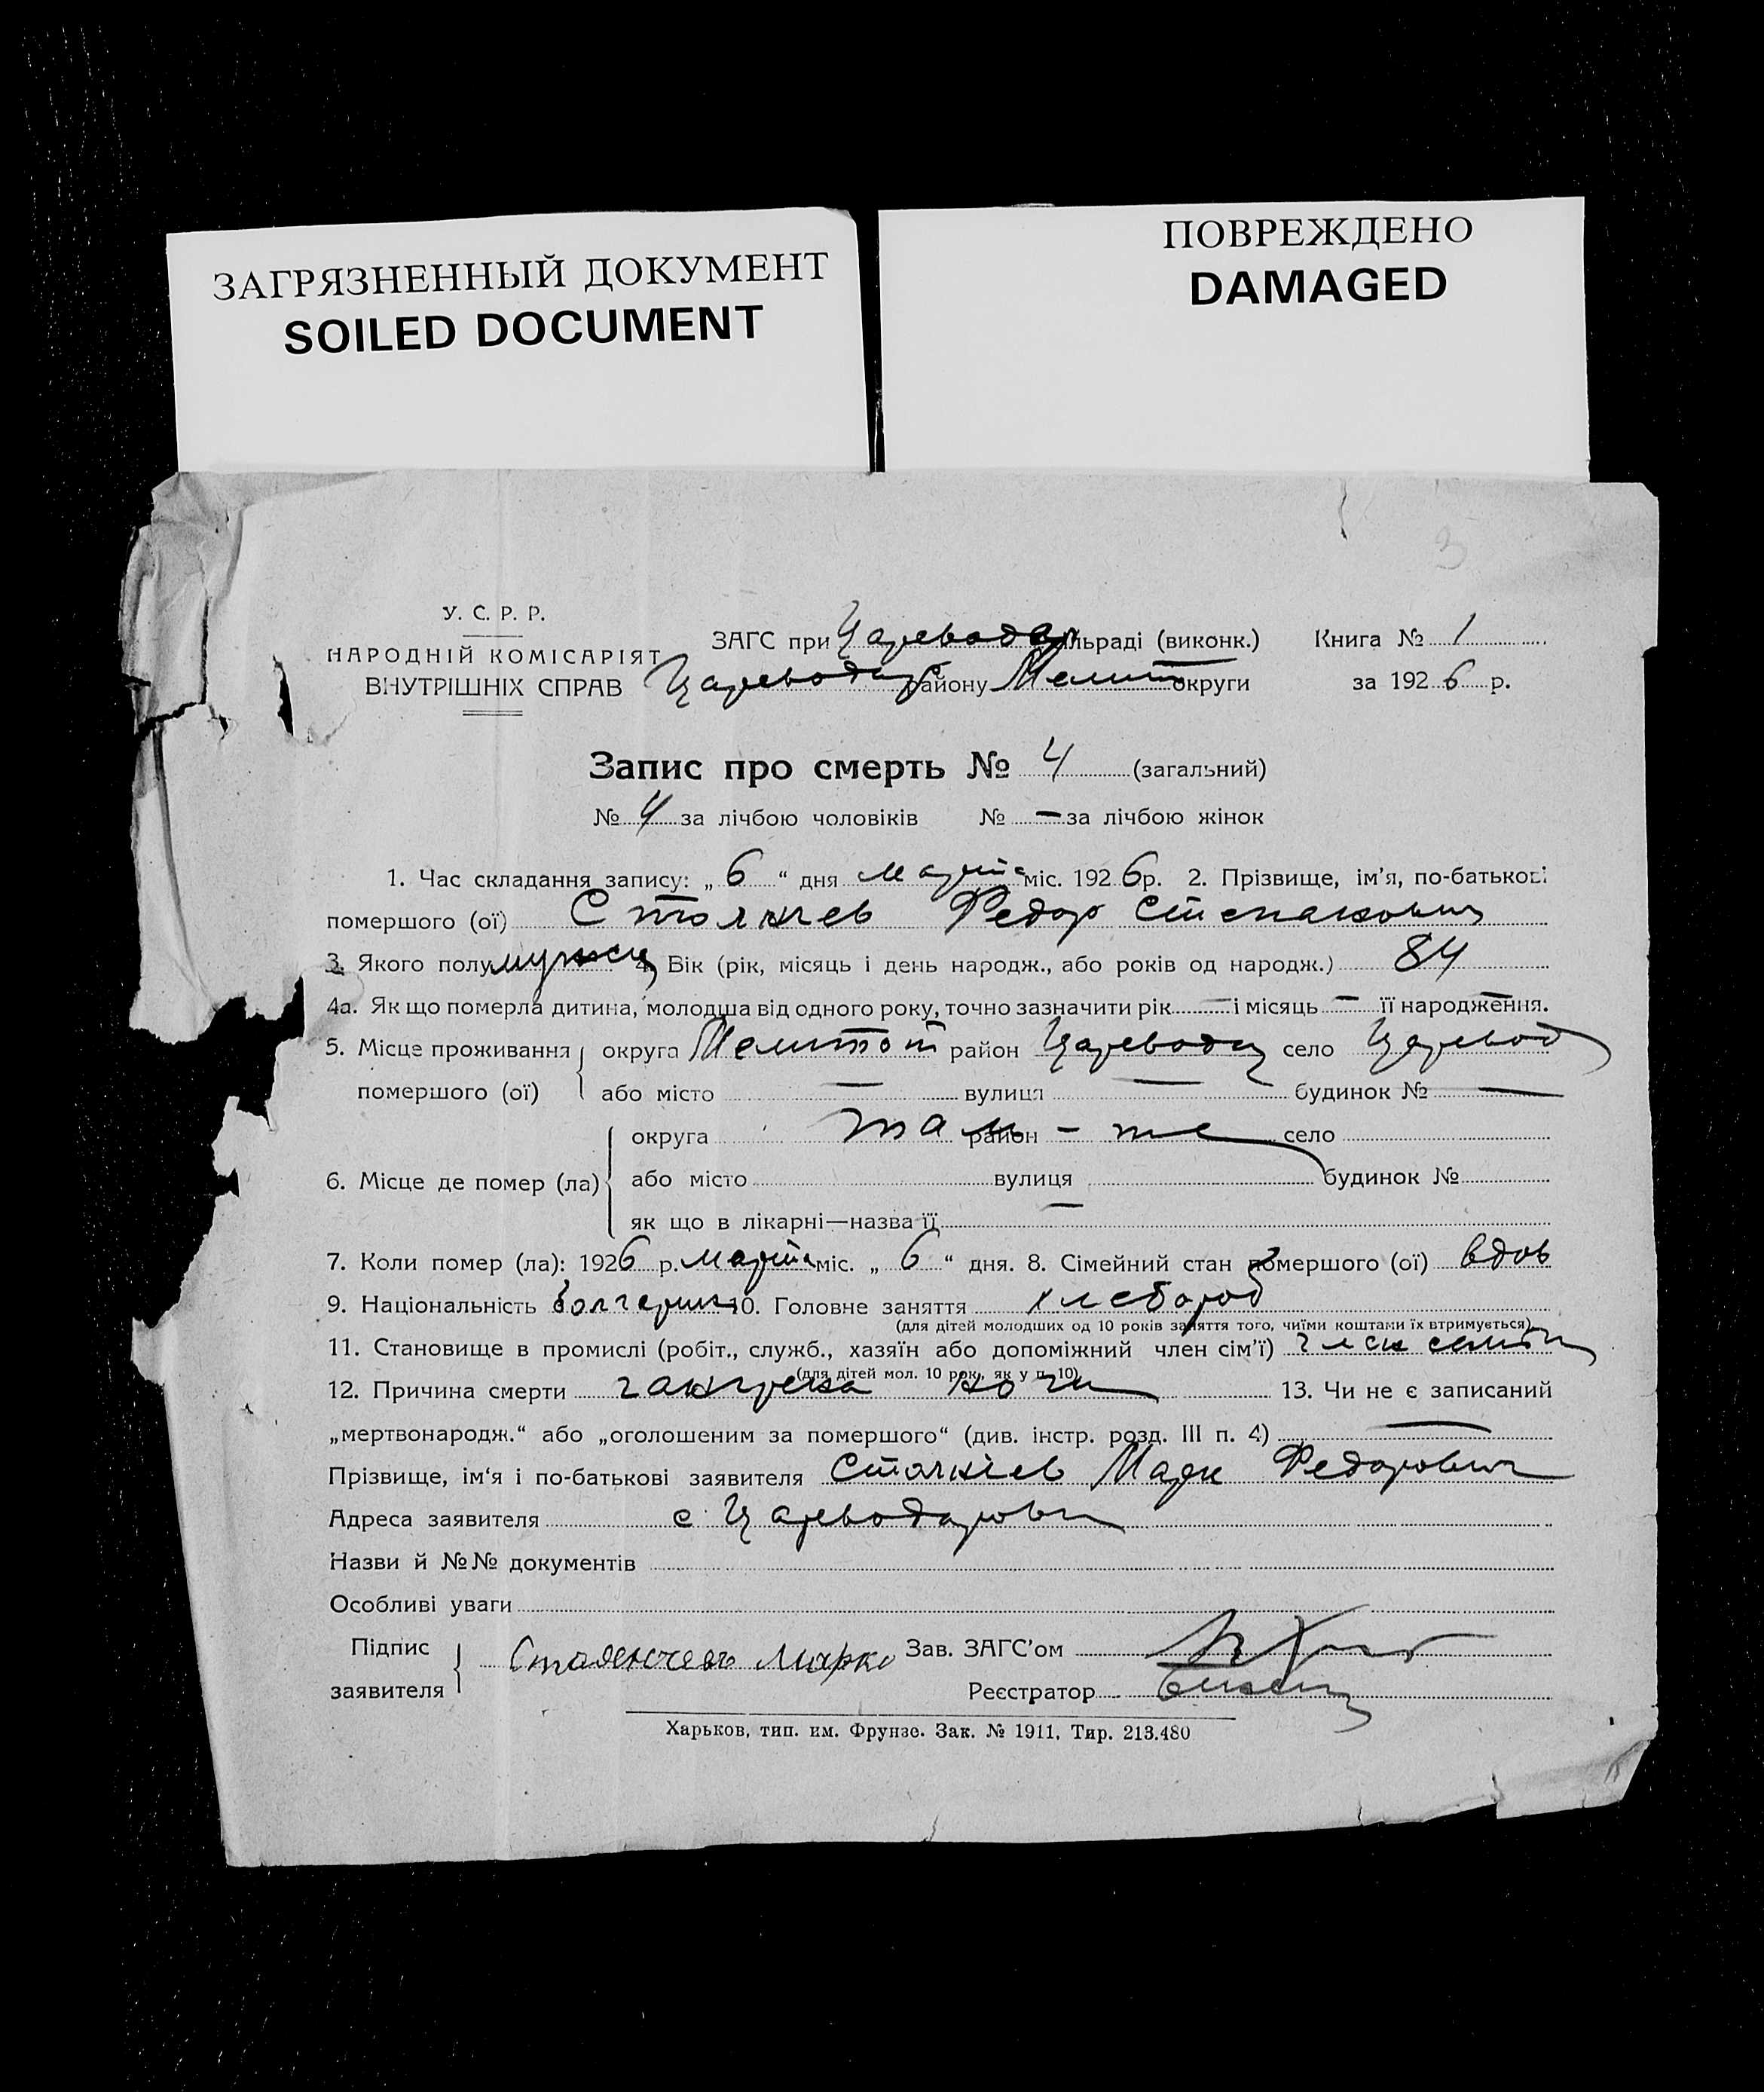 ЗАГРЯЗНЕННЫЙ ДОКУМЕНТ
SOILED DOCUMENT
ПОВРЕЖДЕНО
DAMAGED
3
У. С. Р. Р.
НАРОДНІЙ КОМІСАРІЯТ
ВНУТРІШНІХ СПРАВ
ЗАГС при Цареводар льраді (виконк.) Книга № 1
Цареводар району Мелит округи за 1926 р.
Запис про смерть № 4 (загальний)
№ 4 за лічбою чоловіків № — за лічбою жінок
1. Час складання запису: „ 6 “ дня марта міс. 1926 р. 2. Прізвище, ім’я, по-батькові
помершого (ої) Федор Степанович
3. Якого полу мужск 4. Вік (рік, місяць і день народж., або років од народж.) 84
4а. Як що померла дитина, молодша від одного року, точно зазначити рік — і місяць — її народження.
5. Місце проживання помершого (ої) округа Мелитоп район Цареводар село Царевод
або місто — вулиця — будинок № —
6. Місце де помер (ла) округа там - же район село
або місто вулиця будинок №
як що в лікарні—назва її —
7. Коли помер (ла): 1926 р. марта міс. „ 6 “ дня. 8. Сімейний стан помершого (ої) вдов
9. Національність болгарин 10. Головне заняття хлебороб
(для дітей молодших од 10 років заняття того, чиїми коштами їх втримується)
11. Становище в промислі (робіт., служб., хазяїн або допоміжний член сім’ї) член семьи
(для дітей мол. 10 рок., як у п. 10)
12. Причина смерти гангрена ноги 13. Чи не є записаний
„мертвонародж.“ або „оголошеним за помершого“ (див. інстр. розд. III п. 4) —
Прізвище, ім‘я і по-батькові заявителя Марк Федорович
Адреса заявителя с Цареводаровка
Назви й №№ документів
Особливі уваги
Підпис заявителя Марко Зав. ЗАГС’ом
Реєстратор
Харьков, тип. им. Фрунзе. Зак. № 1911, Тир. 213.480